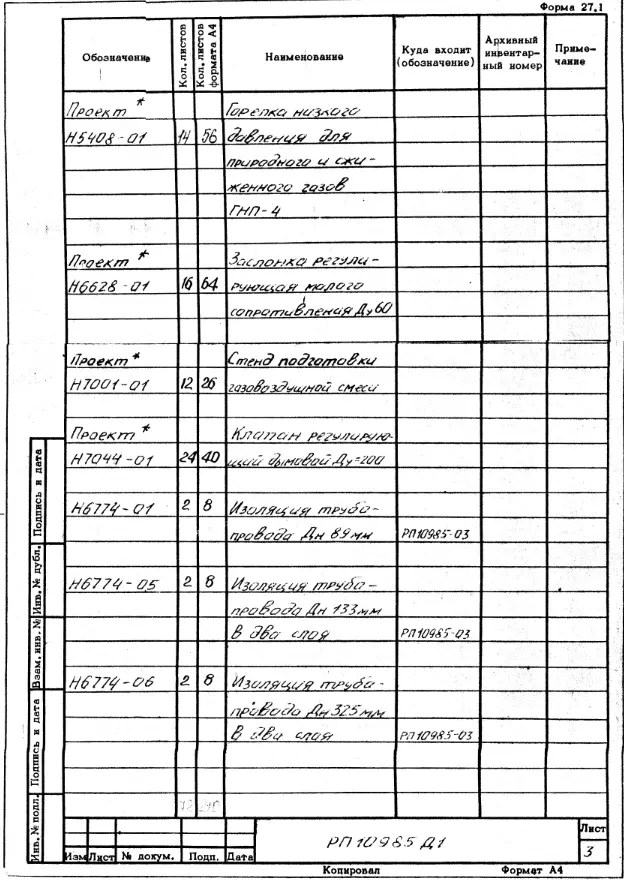 Форма 27.1
Обозначение Кол. листов Кол. листов формата А4 Наименование Куда входит (обозначение) Архивный инвентар- ный номер Приме- чание
Проект * Горелка низкого
Н5408-01 14 56 давления для
природного и сжи-
женного газов
ГНП-4
Проект * Заслонка регули-
Н6628-01 16 64 рующая малого
сопротивления Ду60
Проект * Стенд подготовки
Н7001-01 12 26 газовоздушной смеси
Проект * Клапан регулирую-
Н7044-01 24 40 щий дымовой Ду=200
Н6774-01 2 8 Изоляция трубо-
провода Дн 89мм РП10985-03
Н6774-05 2 8 Изоляция трубо-
провода Дн 133мм
в два слоя РП10985-03
Н6774-06 2 8 Изоляция трубо-
провода Дн 325мм
в два слоя РП10985-03
Подпись и дата
Инв. № дубл.
Взам. инв. №
Подпись и дата
Инв. № подл.
РП 10985 Д1
Лист
3
Изм Лист № докум. Подп. Дата
Копировал Формат А4